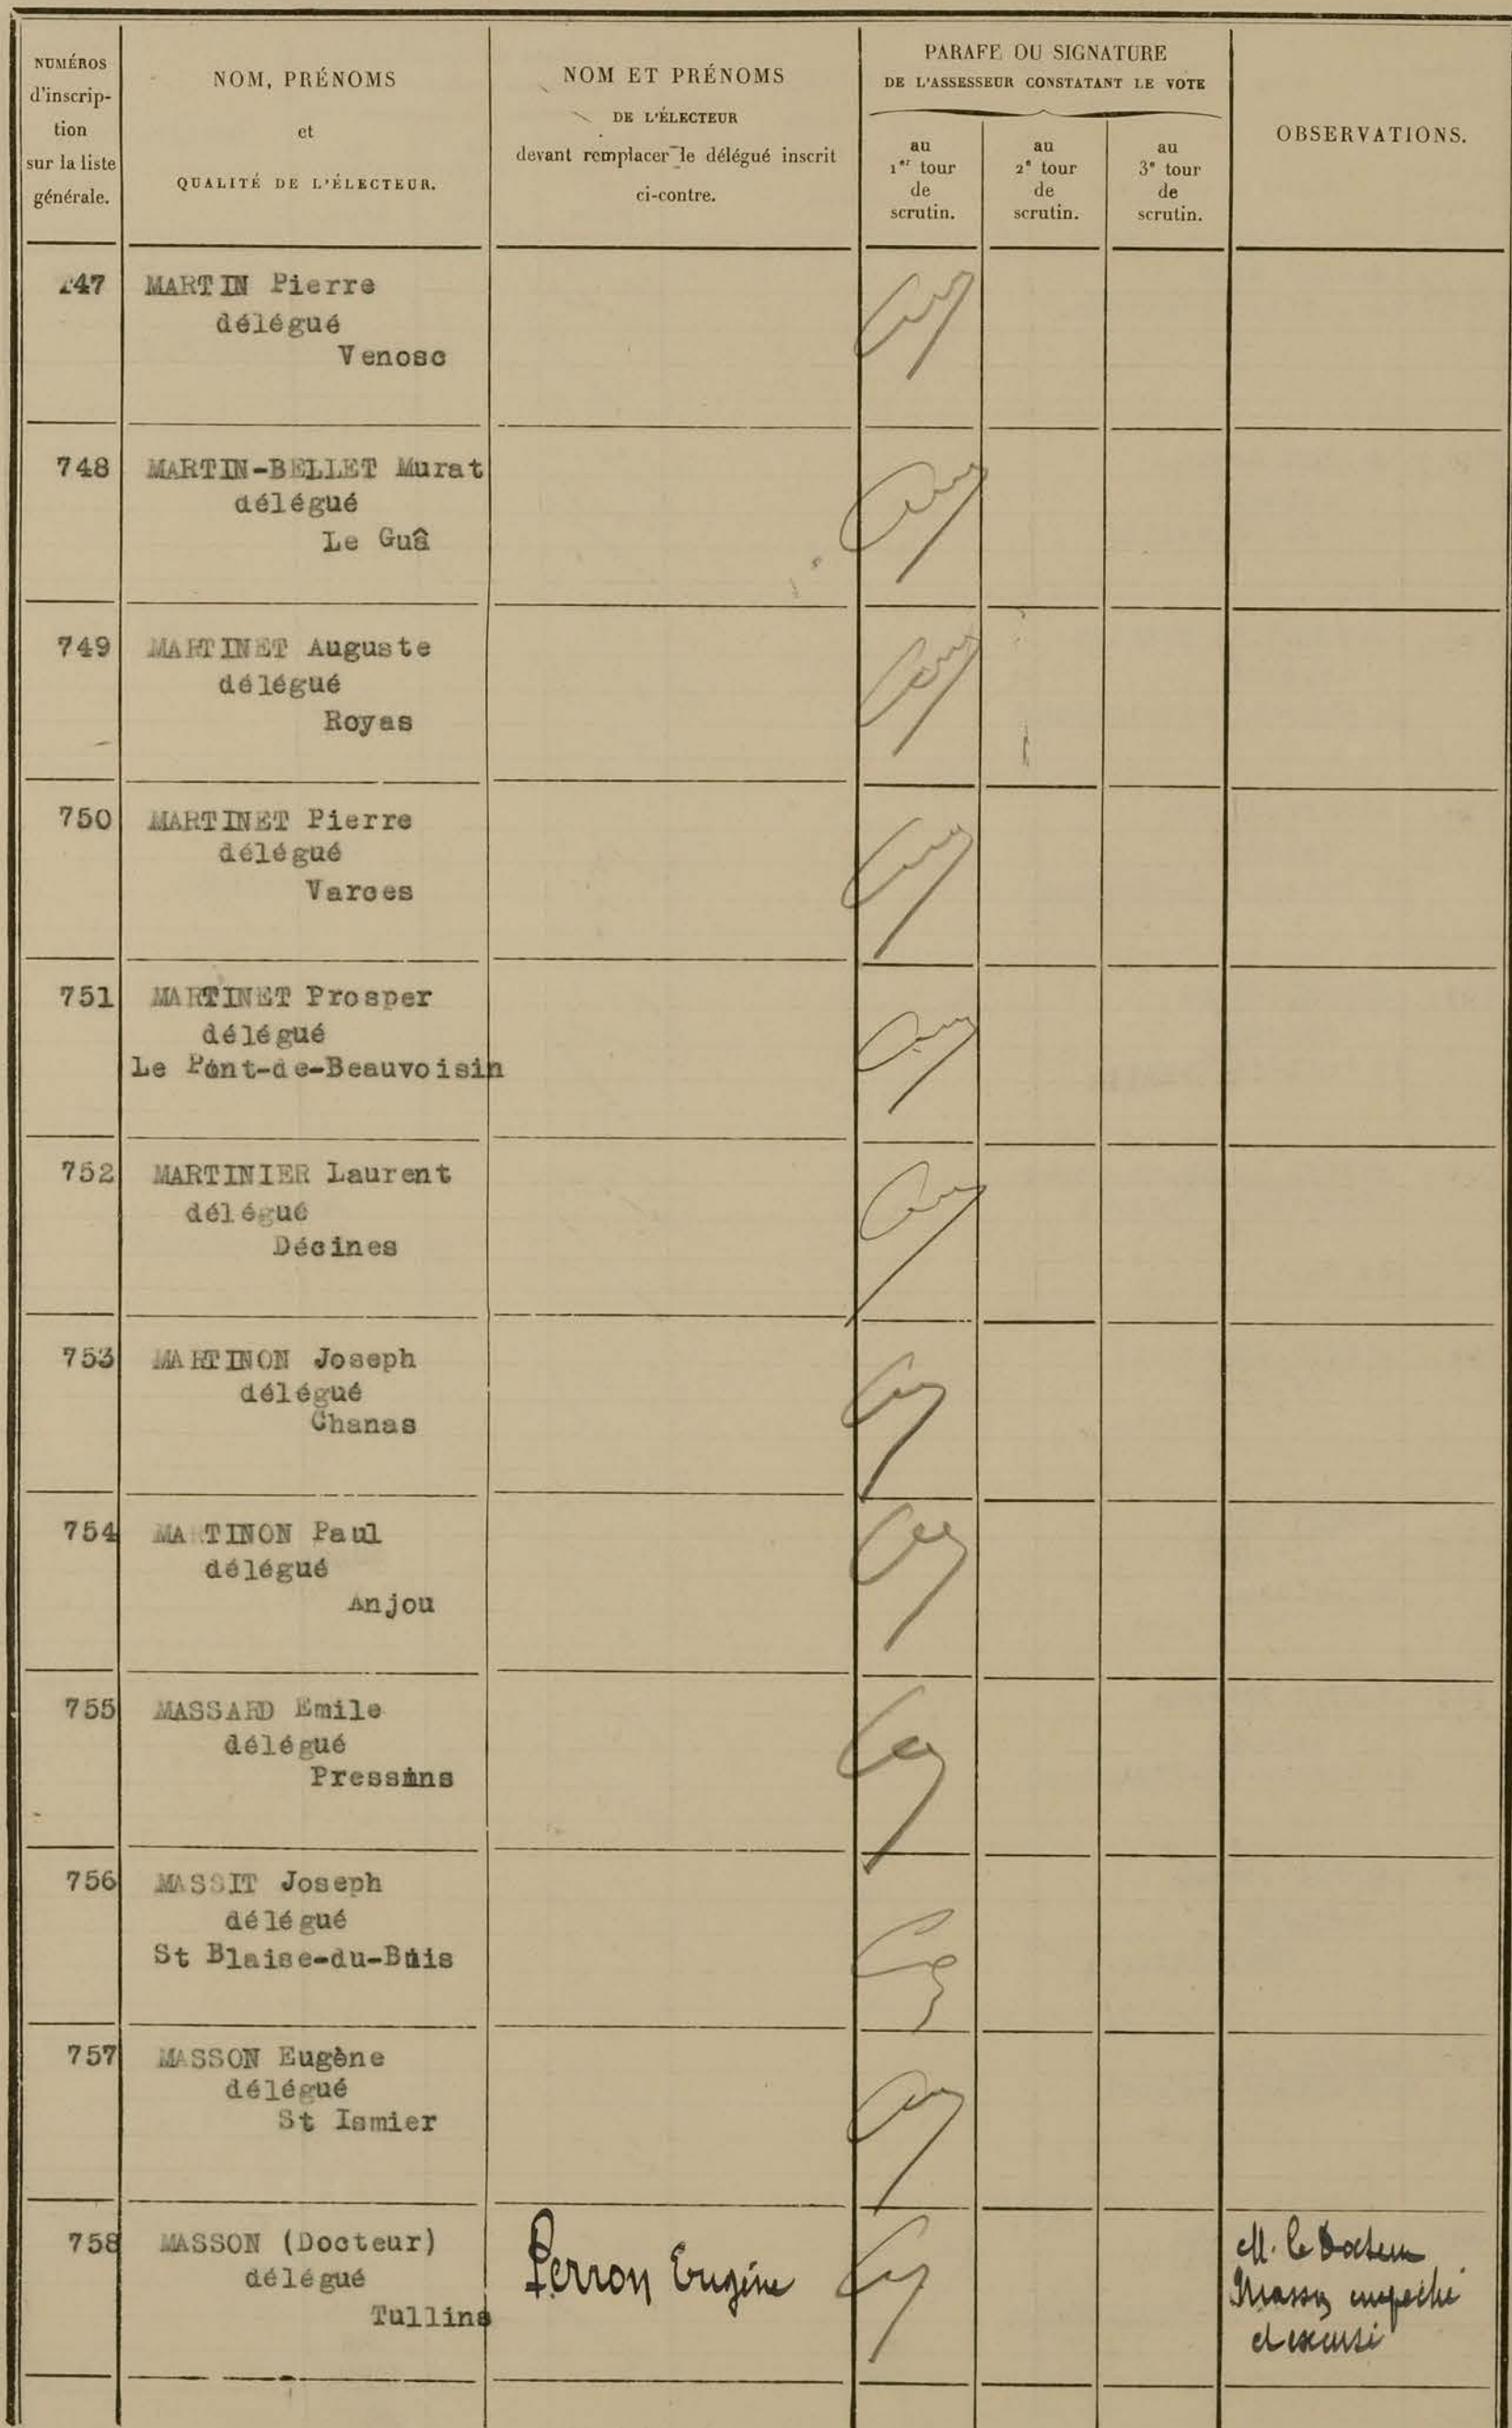 NUMÉROS
d'inscrip-
tion
sur la liste
générale.
NOM, PRÉNOMS
et
QUALITÉ DE L'ÉLECTEUR.
NOM ET PRÉNOMS
DE L'ÉLECTEUR
devant remplacer le délégué inscrit
ci-contre.
PARAFE OU SIGNATURE
DE L'ASSESSEUR CONSTATANT LE VOTE
au
1er tour
de
scrutin.
au
2e tour
de
scrutin.
au
3e tour
de
scrutin.
OBSERVATIONS.
747 MARTIN Pierre
délégué
Venosc
748 MARTIN-BELLET Murat
délégué
Le Guâ
749 MARTINET Auguste
délégué
Royas
750 MARTINET Pierre
délégué
Varces
751 MARTINET Prosper
délégué
Le Pont-de-Beauvoisin
752 MARTINIER Laurent
délégué
Décines
753 MARTINON Joseph
délégué
Chanas
754 MARTINON Paul
délégué
Anjou
755 MASSARD Emile
délégué
Pressins
756 MASSIT Joseph
délégué
St Blaise-du-Buis
757 MASSON Eugène
délégué
St Ismier
758 MASSON (Docteur)
délégué
Tullins
Perron Eugène
M. le Docteur
Masson empêché
et excusé